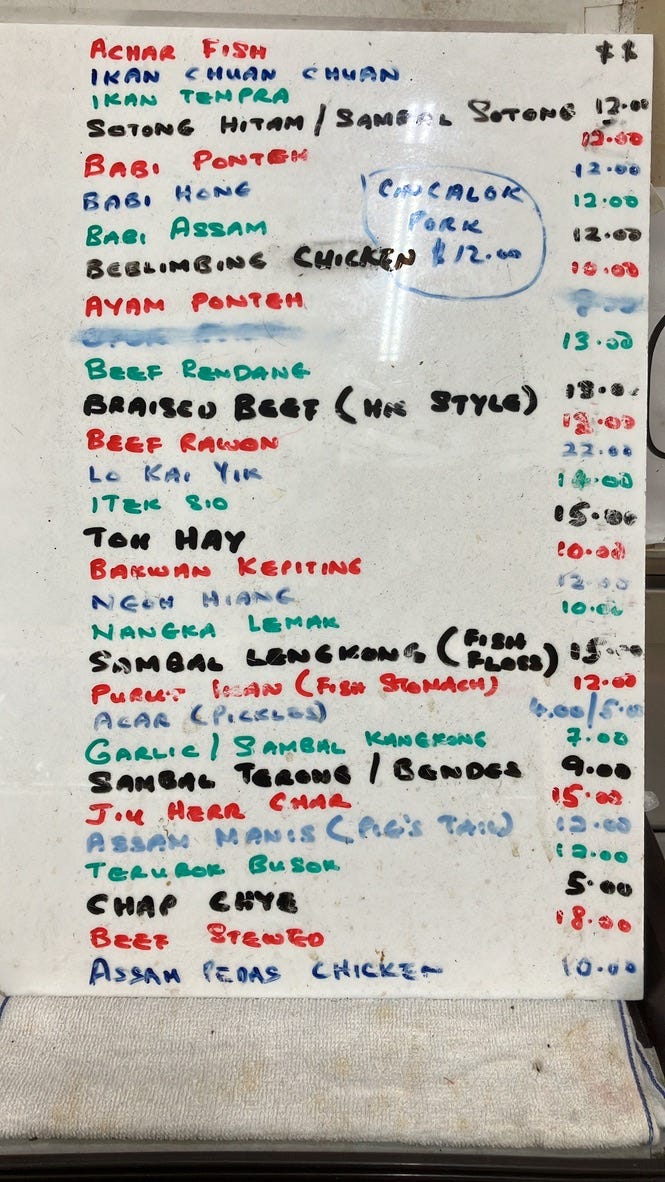 ACHAR FISH $$
IKAN CHUAN CHUAN
IKAN TEMPRA
SOTONG HITAM / SAMBAL SOTONG 12.00
BABI PONTEH 12.00
BABI HONG 12.00
BABI ASSAM 12.00
CINCALOK
PORK
$12.00
BEBLIMBING CHICKEN 12.00
AYAM PONTEH 10.00
BEEF RENDANG 13.00
BRAISED BEEF (HN STYLE) 13.00
BEEF RAWON 13.00
LO KAI YIK 22.00
ITEK SIO 14.00
TOH HAY 15.00
BAKWAN KEPITING 10.00
NGOH HIANG 12.00
NANGKA LEMAK 10.00
SAMBAL LENGKONG (FISH FLOSS) 15.00
PURUT IKAN (FISH STOMACH) 12.00
ACAR (PICKLES) 4.00/5.00
GARLIC / SAMBAL KANGKONG 7.00
SAMBAL TERONG / BENDES 9.00
JIU HERR CHAR 15.00
ASSAM MANIS (PIG'S TAIL) 12.00
TERUBOK BUSOK 12.00
CHAP CHYE 5.00
BEEF STEWED 18.00
ASSAM PEDAS CHICKEN 10.00